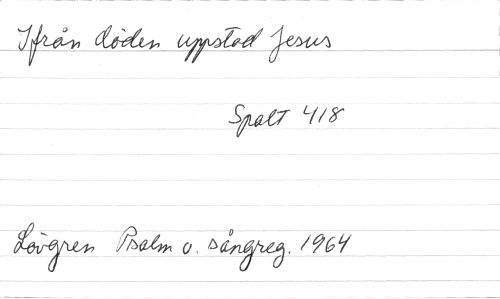 Ifrån döden uppstod Jesus
Spalt 418
Lövgren Psalm o. sångreg. 1964